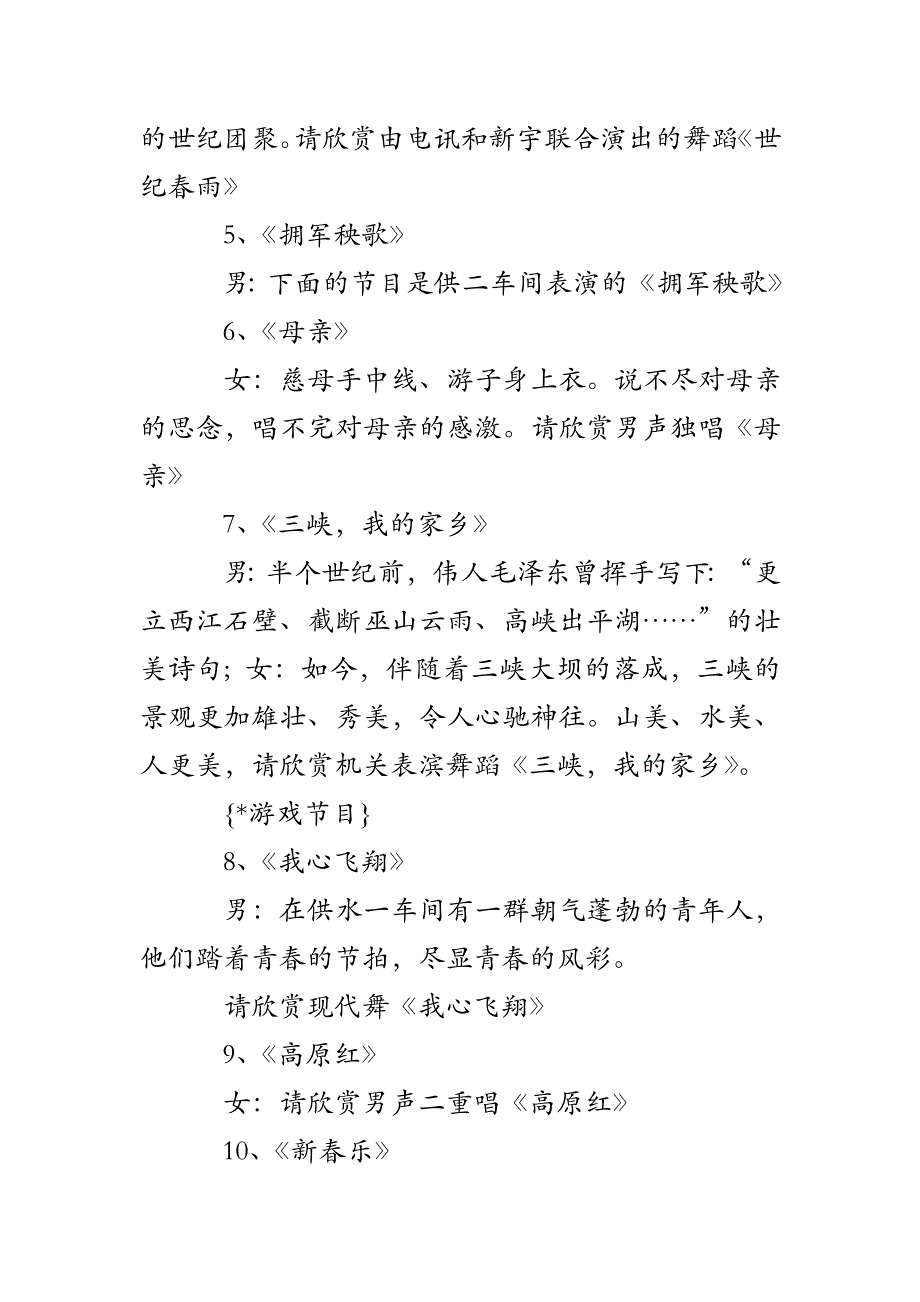 的世纪团聚。请欣赏由电讯和新宇联合演出的舞蹈《世
纪春雨》
5、《拥军秧歌》
男：下面的节目是供二车间表演的《拥军秧歌》
6、《母亲》
女：慈母手中线、游子身上衣。说不尽对母亲
的思念，唱不完对母亲的感激。请欣赏男声独唱《母
亲》
7、《三峡，我的家乡》
男：半个世纪前，伟人毛泽东曾挥手写下：“更
立西江石壁、截断巫山云雨、高峡出平湖……”的壮
美诗句；女：如今，伴随着三峡大坝的落成，三峡的
景观更加雄壮、秀美，令人心驰神往。山美、水美、
人更美，请欣赏机关表滨舞蹈《三峡，我的家乡》。
{*游戏节目}
8、《我心飞翔》
男：在供水一车间有一群朝气蓬勃的青年人，
他们踏着青春的节拍，尽显青春的风彩。
请欣赏现代舞《我心飞翔》
9、《高原红》
女：请欣赏男声二重唱《高原红》
10、《新春乐》